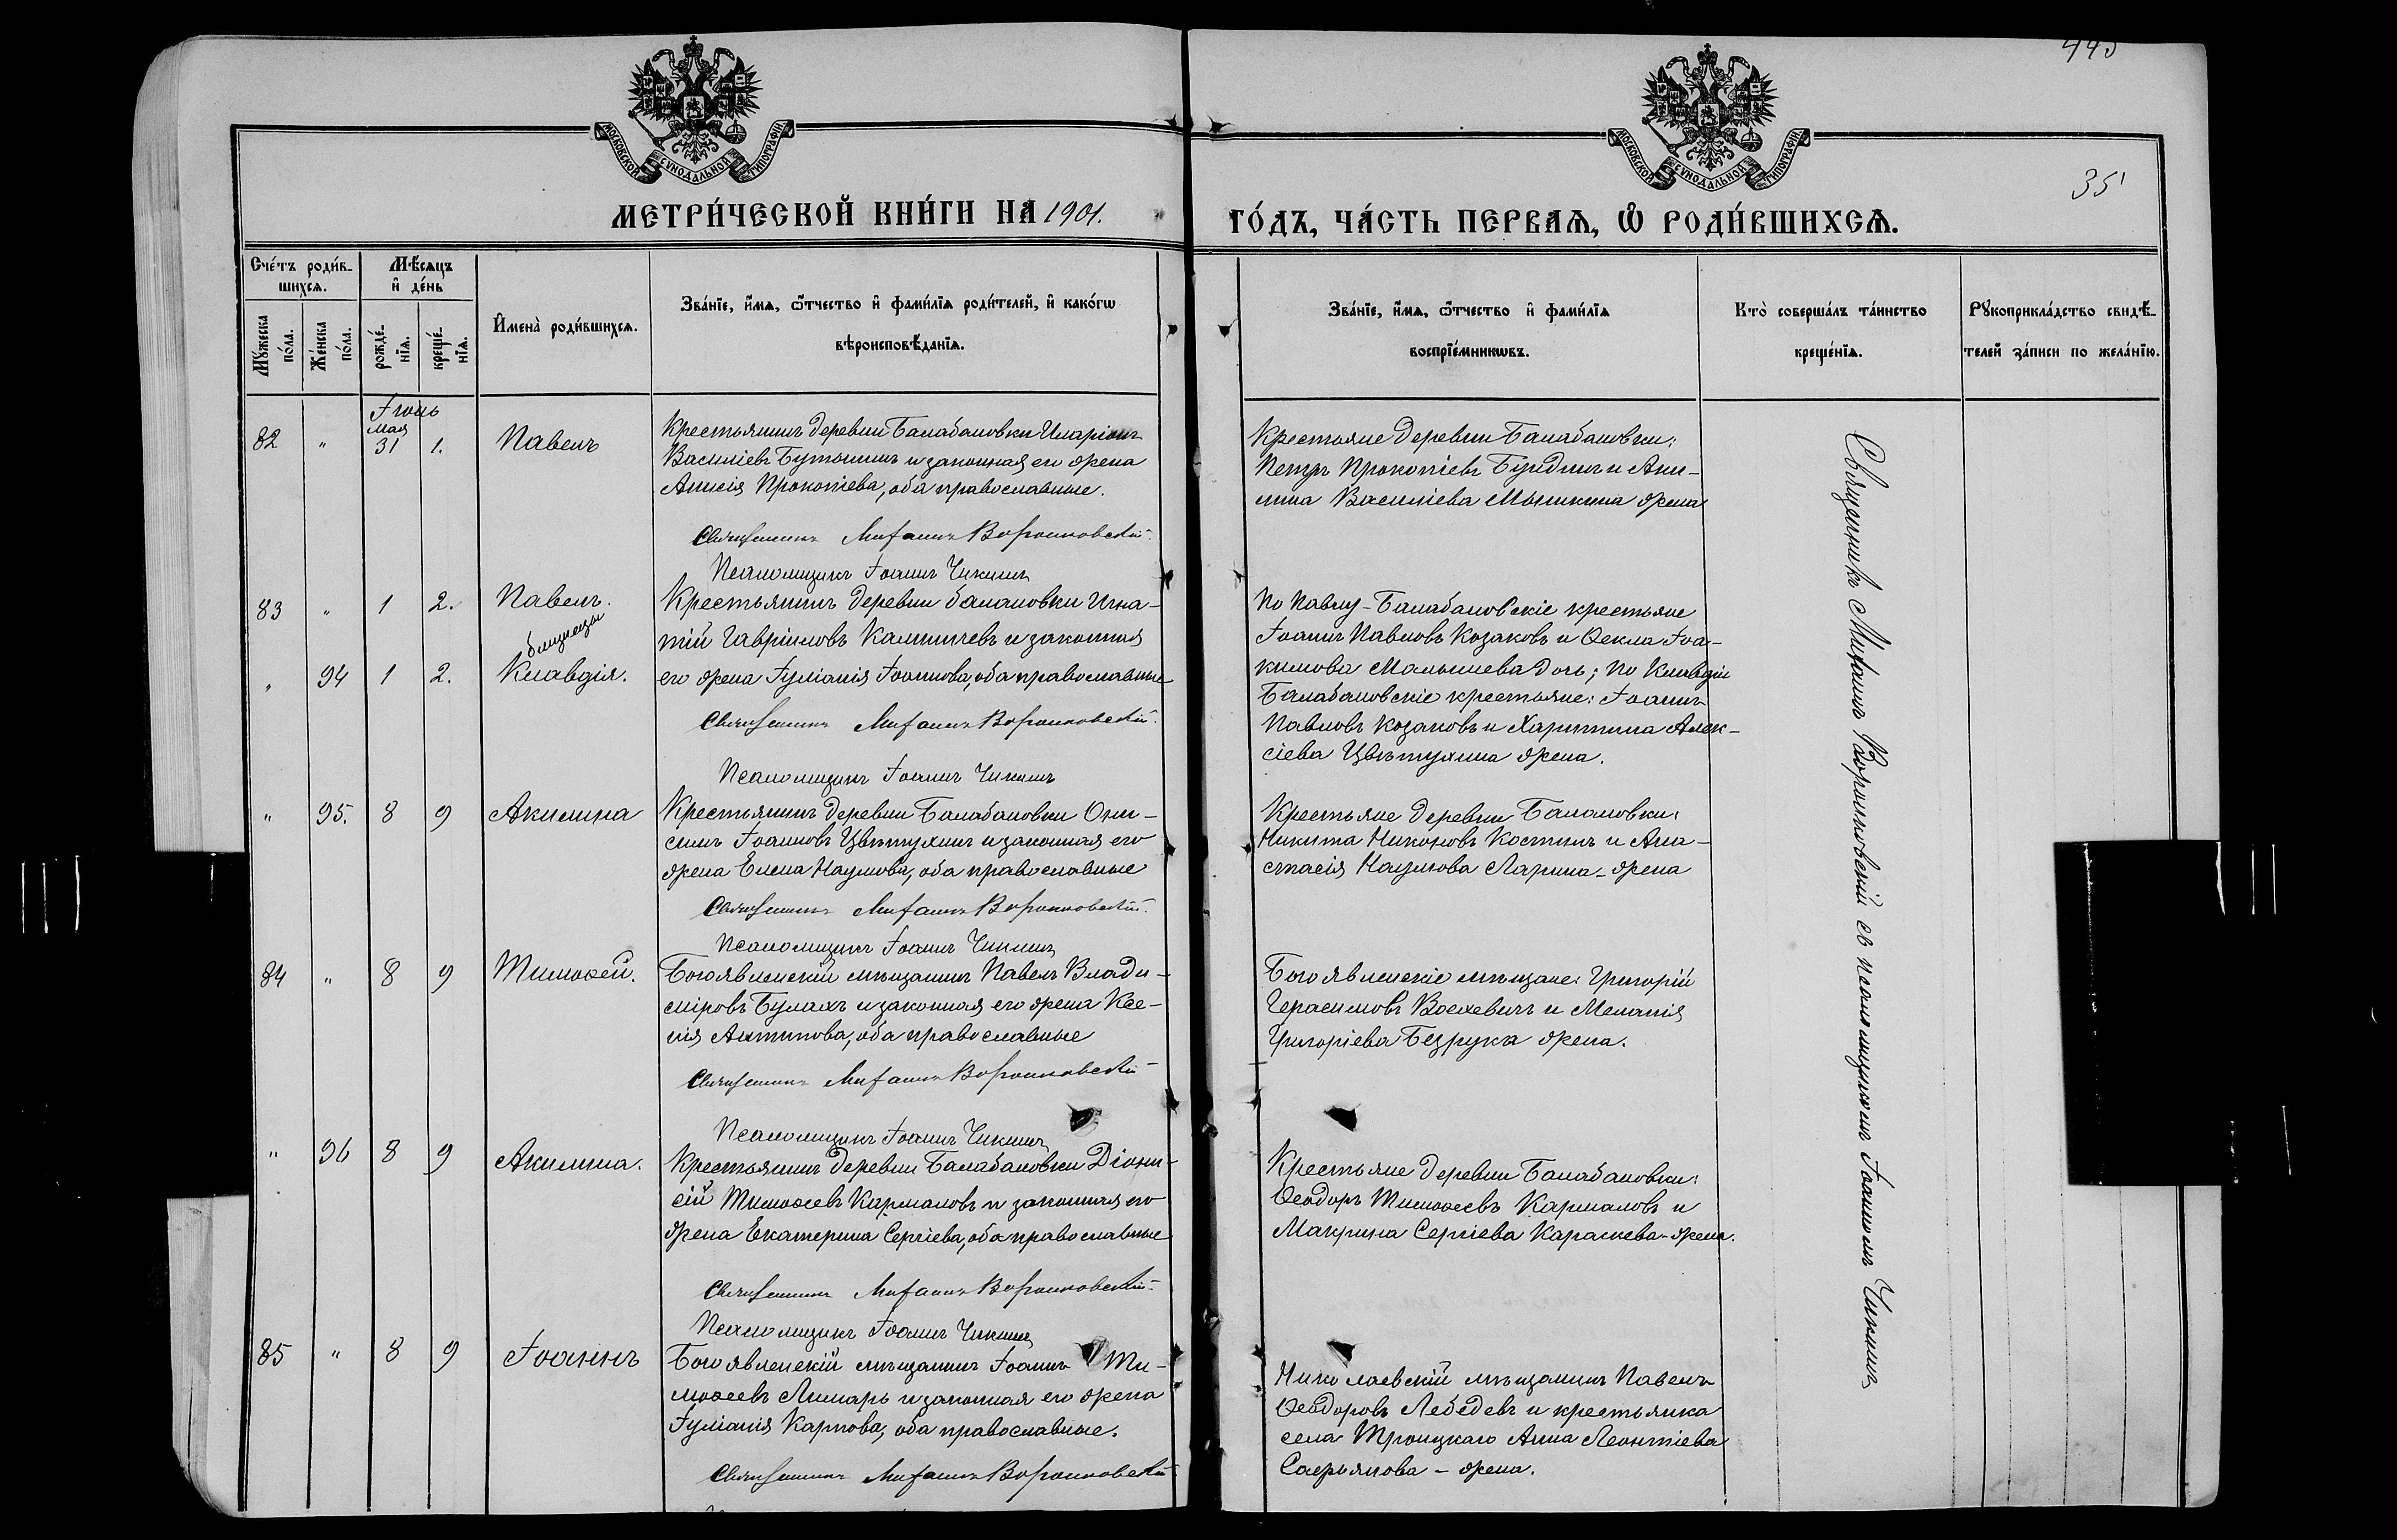 445
35
МОСКОВСКОЙ СѴНОДАЛЬНОЙ ТИПОГРАФІИ
МОСКОВСКОЙ СѴНОДАЛЬНОЙ ТИПОГРАФІИ
МЕТРИ́ЧЕСКОЙ КНИ́ГИ НА 1901.
ГО́ДЪ, ЧА́СТЬ ПЕРВАѦ, Ѡ҃ РОДИ́ВШИХСѦ.
Сче́тъ роди́в-
шихсѧ.
Мѣ́сѧцъ
и҆ де́нь
Мꙋ́жеска
по́ла.
Же́нска
по́ла.
рожде́-
нїѧ.
креще́-
нїѧ.
И҆мена̀ роди́вшихсѧ.
Зва́нїе, и҆́мѧ, ѻ҆́тчество и҆ фами́лїѧ роди́телей, и҆ како́гѡ
вѣроисповѣ́данїѧ.
Зва́нїе, и҆́мѧ, ѻ҆́тчество и҆ фами́лїѧ
воспрїе́мникѡвъ.
Кто̀ соверша́лъ та́инство
креще́нїѧ.
Рꙋкоприкла́дство свидѣ́-
телей за́писи по жела́нїю.
Іюнь
мая
82 " 31 1. Павелъ
Крестьянинъ деревни Балабановки Иларіонъ
Василіевъ Бутынинъ и законная его жена
Анисія Прокопіева, оба православные.
Священникъ МихаилъВорошковскій.
Псаломщикъ Іоаннъ Чикинъ
Крестьяне деревни Балабановки:
Петръ Прокопіевъ Бундинъ и Аки-
лина Василіева Мышкина жена
83 " 1 2. Павелъ.
близнецы
" 94 1 2. Клавдія.
Крестьянинъ деревни балановки Игна-
тій Гавріиловъ Калиничевъ и законная
его жена Іуліанія Іоаннова, оба православные
Священникъ Михаилъ Ворошковскій.
Псаломщикъ Іоаннъ Чикинъ
По Павлу - Балабановскіе крестьяне
Іоаннъ Павловъ Козаковъ и Ѳекла Іоа-
кимова Малышева дочь; по Клавдіи
Балабановскіе крестьяне: Іоаннъ
Павловъ Козаковъ и Харитина Алек-
сіева Цвѣтухина жена.
" 95. 8 9 Акилина
Крестьянинъ деревни Балабановки Они-
симъ Іоанновъ Цвѣтухинъ и законная его
жена Елена Наумова, оба православные
Священникъ Михаилъ Ворошковскій.
Псаломщикъ Іоаннъ Чикинъ
Крестьяне деревни Балановки:
Никита Никоновъ Костинъ и Ана-
стасія Наумова Ларина - жена
84 " 8 9 Тимоѳей.
Богоявленскій мѣщанинъ Павелъ Влади-
міровъ Булахъ и законная его жена Ксе-
нія Антипова, оба православные
Священникъ Михаилъ Ворошковскій
Псаломщикъ Іоаннъ Чикинъ
Богоявленскіе мѣщане: Григорій
Герасимовъ Восхевичъ и Меланія
Григоріева Безрука жена.
" 96 8 9 Акилина.
Крестьянинъ деревни Балабановки Діони-
сій Тимоѳеевъ Кармановъ и законная его
жена Екатерина Сергіева, оба православные
Священникъ Михаилъ Ворошковскій.
Псаломщикъ Іоаннъ Чикинъ
Крестьяне деревни Балабановки:
Ѳеодоръ Тимоѳеевъ Кармановъ и
Макрина Сергіева Карасева - жена.
85 " 8 9 Іоаннъ
Богоявленскій мѣщанинъ Іоаннъ Ти-
моѳеевъ Лимарь и законная его жена
Іуліанія Карпова, оба православные.
Священникъ Михаилъ Ворошковскій
Николаевскій мѣщанинъ Павелъ
Ѳеодоровъ Лебедевъ и крестьянка
села Троицкаго Анна Леонтіева
жена.
Священникъ Михаилъ Ворошковскій съ псаломщикомъ Іоанномъ Чикинымъ